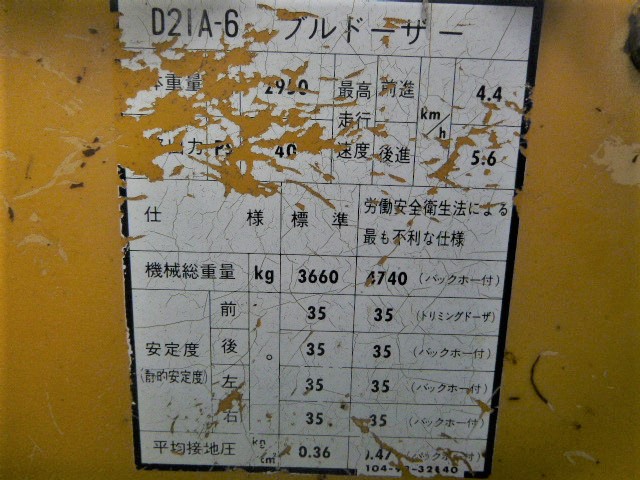 D21A-6 ブルドーザー
体重量 最高 前進 km/h 4.4
力 PS 40 走行
速度 後進 5.6
仕様 標準 労働安全衛生法による
最も不利な仕様
機械総重量 kg 3660 4740 (バックホー付)
前 35 35 (トリミングドーザ)
安定度 後 ° 35 35 (バックホー付)
(静的安定度) 左 35 35 (バックホー付)
右 35 35 (バックホー付)
平均接地圧 kg/cm² 0.36 0.47 (バックホー付)